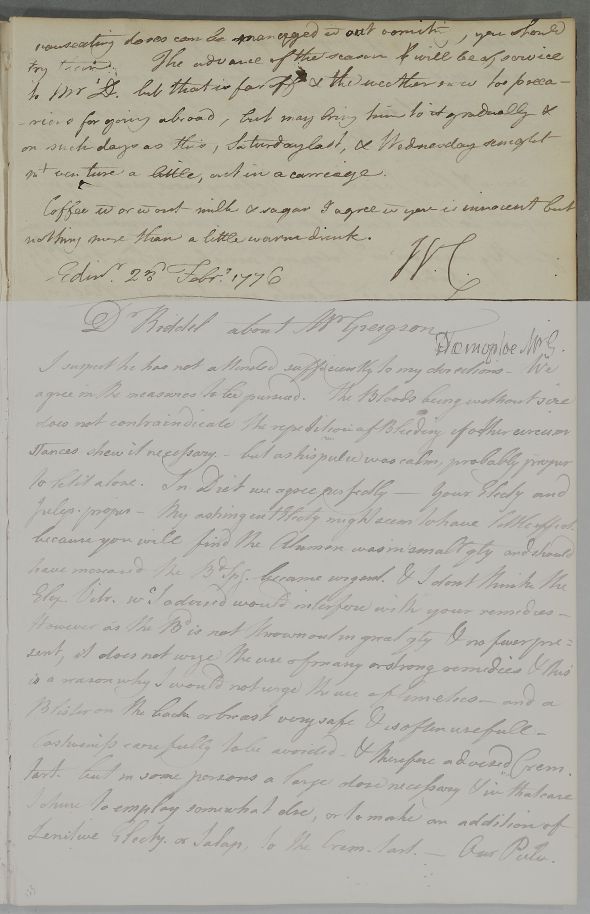 nauseating doses can be managed wt out vomitg, you should
try them. The advance of the season will be of service
to Mr G. but that is far off & the weather now too preca-
-rious for going abroad, but may bring him to it gradually &
on such days as this, Saturday last, & Wednesday
venture a little, out in a carriage.
Coffee wt or wt out milk & sugar I agree wt you is innocent but
nothing more than a little warm drink.
W.C.
Edinr. 23d Febr. 1776
Dr Riddel about Mr Greigson
Hæmoptoe Mr G.
I suspect he has not attended sufficiently to my directions - We
agree in the measures to be pursued. The Blood being without size
does not contraindicate the repetition of Bleeding if other circum
stances shew it necessary - but as his pulse was calm, probably proper
to let it alone. In Diet we agree perfectly — Your Electy and
Julep proper - My astringent Electy might seem to have little effect
because you will find the Alumen was in small qty and should
have increased the Bd Spg. became urgent. & I dont think the
Elix. Vitr. wc I advised would interfere with your remedies -
However as the Bd is not thrown out in great qty & no fever pre-
sent, it does not urge the use of many or strong remedies & this
is a reason why I would not urge the use of Emetics - and a
Blister on the back or breast very safe & is often usefull -
Costiveness carefully to be avoided - & therefore advised Crem.
tart. but in some persons a large dose necessary & in that case
I chuse to employ somewhat else, or to make an addition of
Lenitive Electy. or Jalap. to the Crem. tart. — Our Pulv.